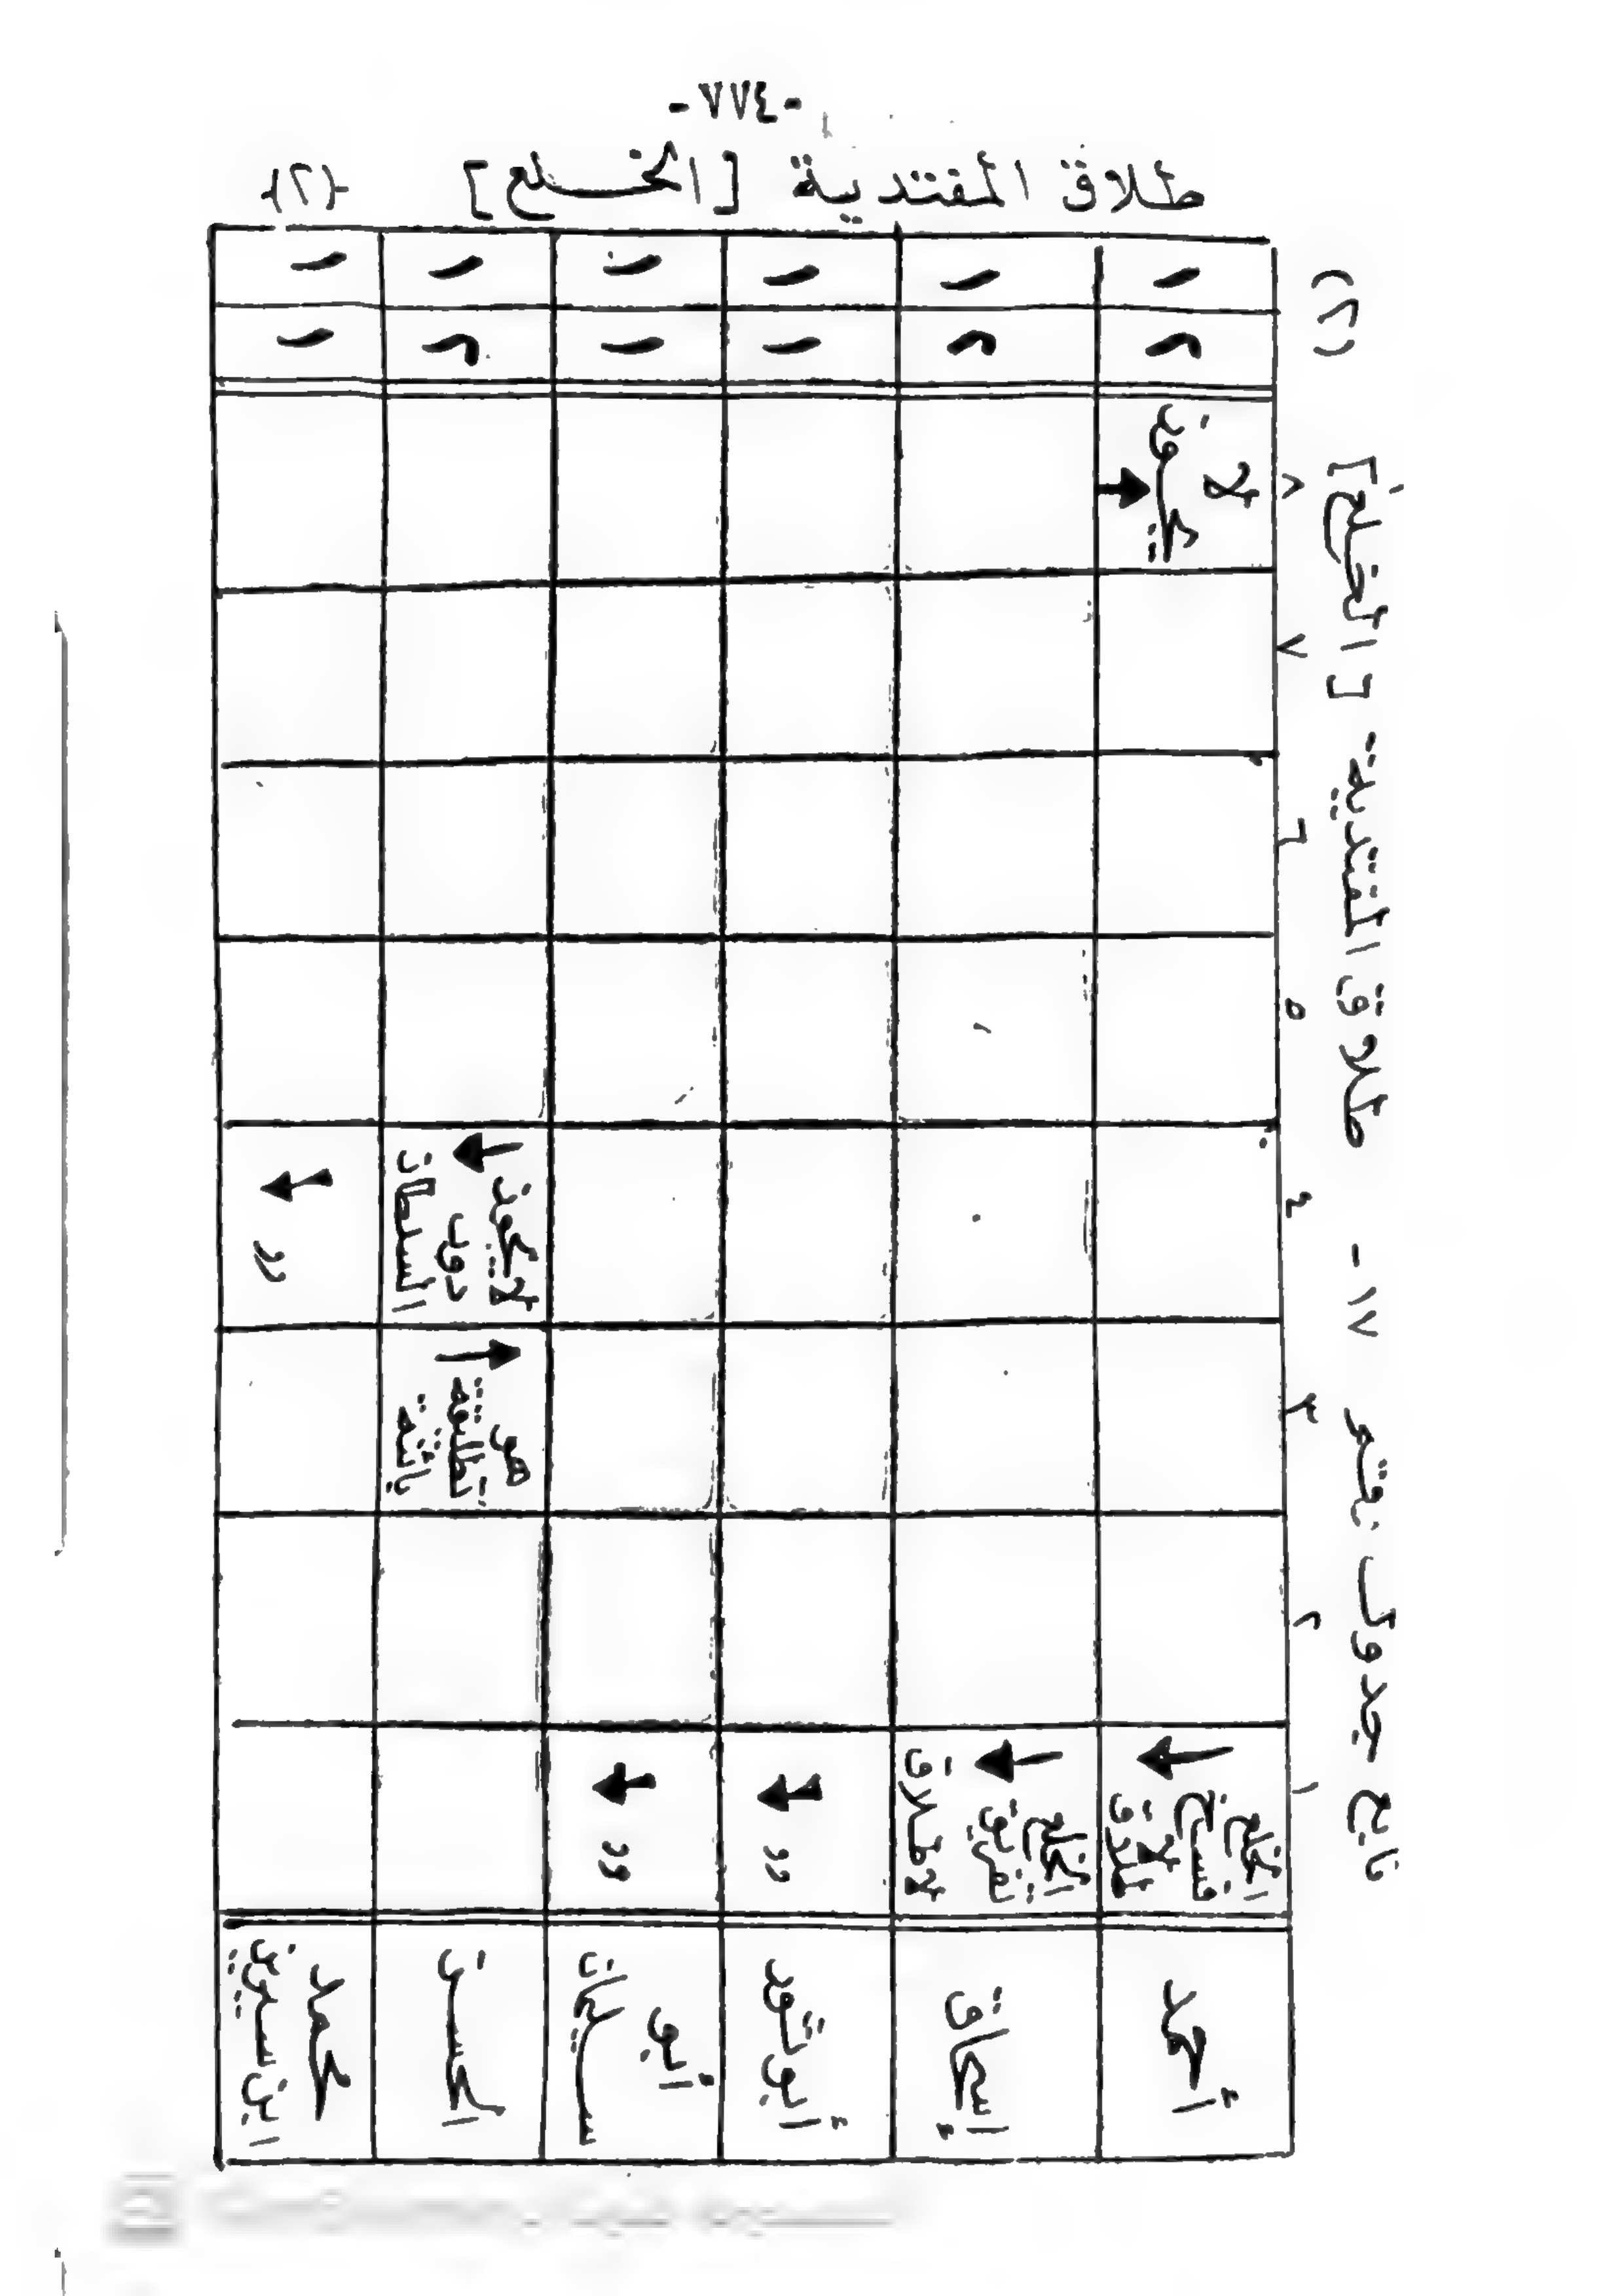 -٧٧٤-
طلاق المفتدية [الخلع] -{٢}-
تابع جدول رقم ١٧- طلاق المفتدية [الخلع] (٢)
١ ٢ ٣ ٤ ٥ ٦ ٧ ٨
أحمد
الخلع
فسخ
لا
طلاق
لا
يكون
٢ ١
إسحاق
الخلع
تفريق
لا طلاق
٢ ١
أبو ثور
〃
١ ١
أبو
سليمان
〃
١ ١
الحسن
هي
تطليقة
بائنة
لا يكون
دون
السلطان
٢ ١
محمد
ابن سيرين
〃
١ ١